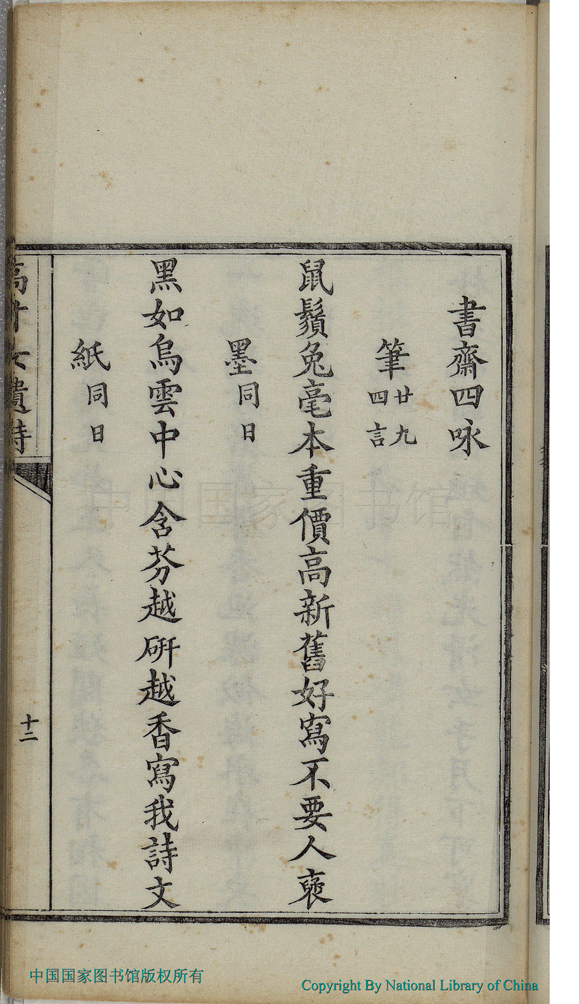 書齋四咏
筆 廿九 四言
鼠鬚兔毫本重價高新舊好寫不要人褒
墨 同日
黑如烏雲中心含芬越硏越香寫我詩文
紙 同日
女遺詩
十二
中国国家图书馆
中国国家图书馆版权所有
Copyright By National Library of China